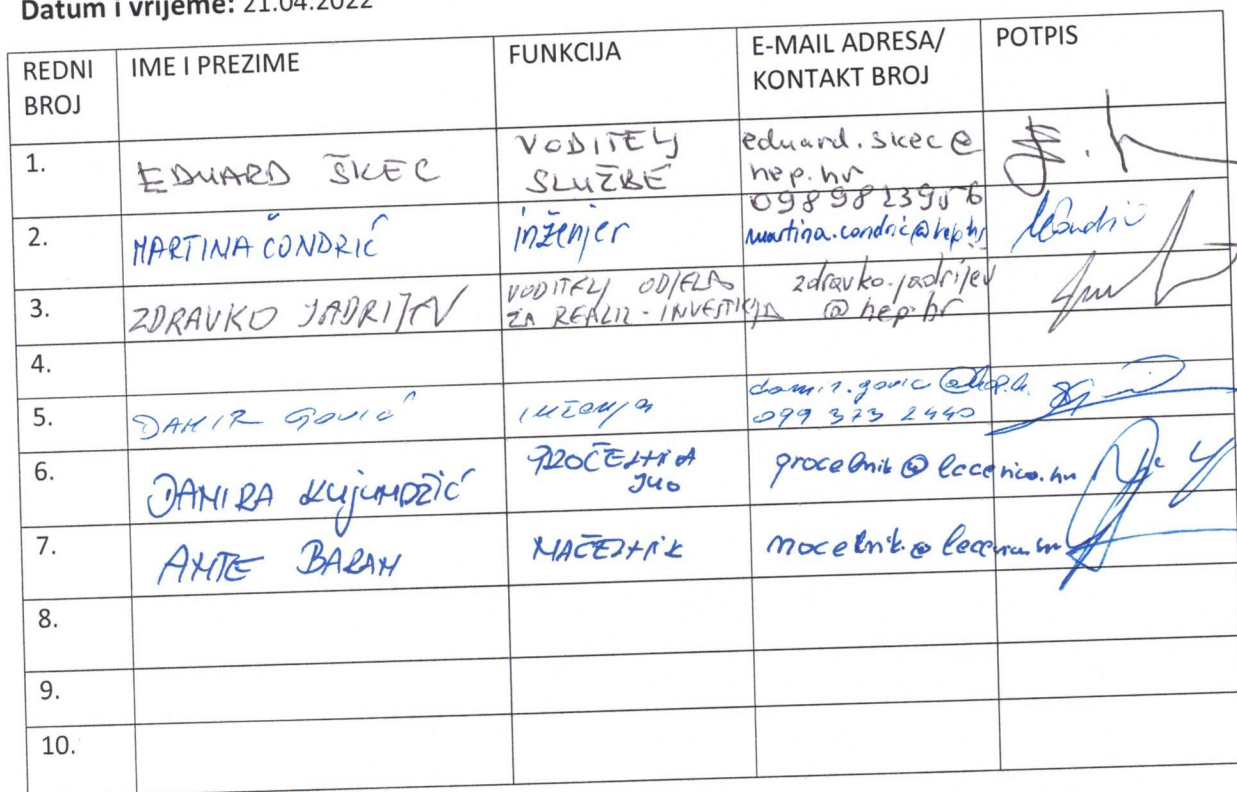 Datum i vrijeme: 21.04.2022
REDNI BROJ IME I PREZIME FUNKCIJA E-MAIL ADRESA/ KONTAKT BROJ POTPIS
1. EDUARD ŠKEC VODITELJ SLUŽBE eduard.skec@hep.hr 0989823956
2. MARTINA ČONDRIĆ inženjer martina.condric@hep.hr
3. ZDRAVKO JADRIJEV VODITELJ ODJELA ZA REALIZ. INVESTICIJA zdravko.jadrijev@hep.hr
4.
5. DAMIR GOVIĆ inženjer damir.govic@hep.hr 099 373 2440
6. DANIRA KUJUNDŽIĆ PROČELNICA JUO procelnik@lecevica.hr
7. ANTE BARAN NAČELNIK nacelnik@lecevica.hr
8.
9.
10.